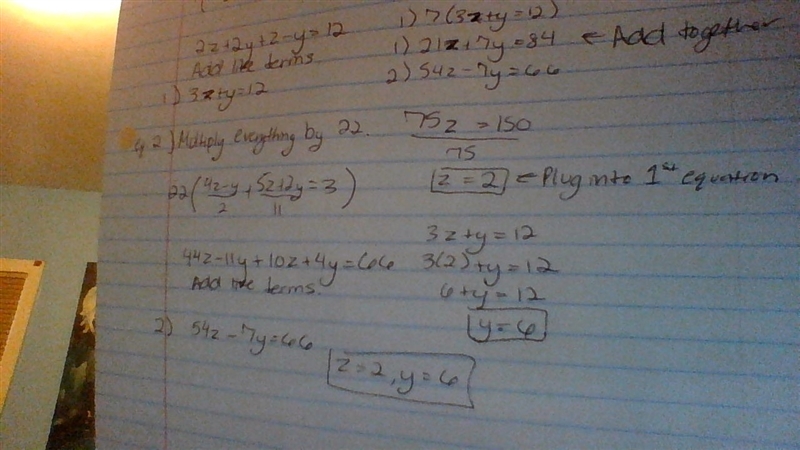 2z+2y+z-y=12
Add like terms.
1) 3z+y=12
2) Multiply everything by 22.
22(4z-y/2 + 5z+2y/11 = 3)
44z-11y+10z+4y=66
Add like terms.
2) 54z-7y=66
1) 7(3z+y=12)
1) 21z+7y=84 ← Add together
2) 54z-7y=66
75z = 150
75
z=2 ← Plug into 1st equation
3z+y=12
3(2)+y=12
6+y=12
y=6
z=2, y=6